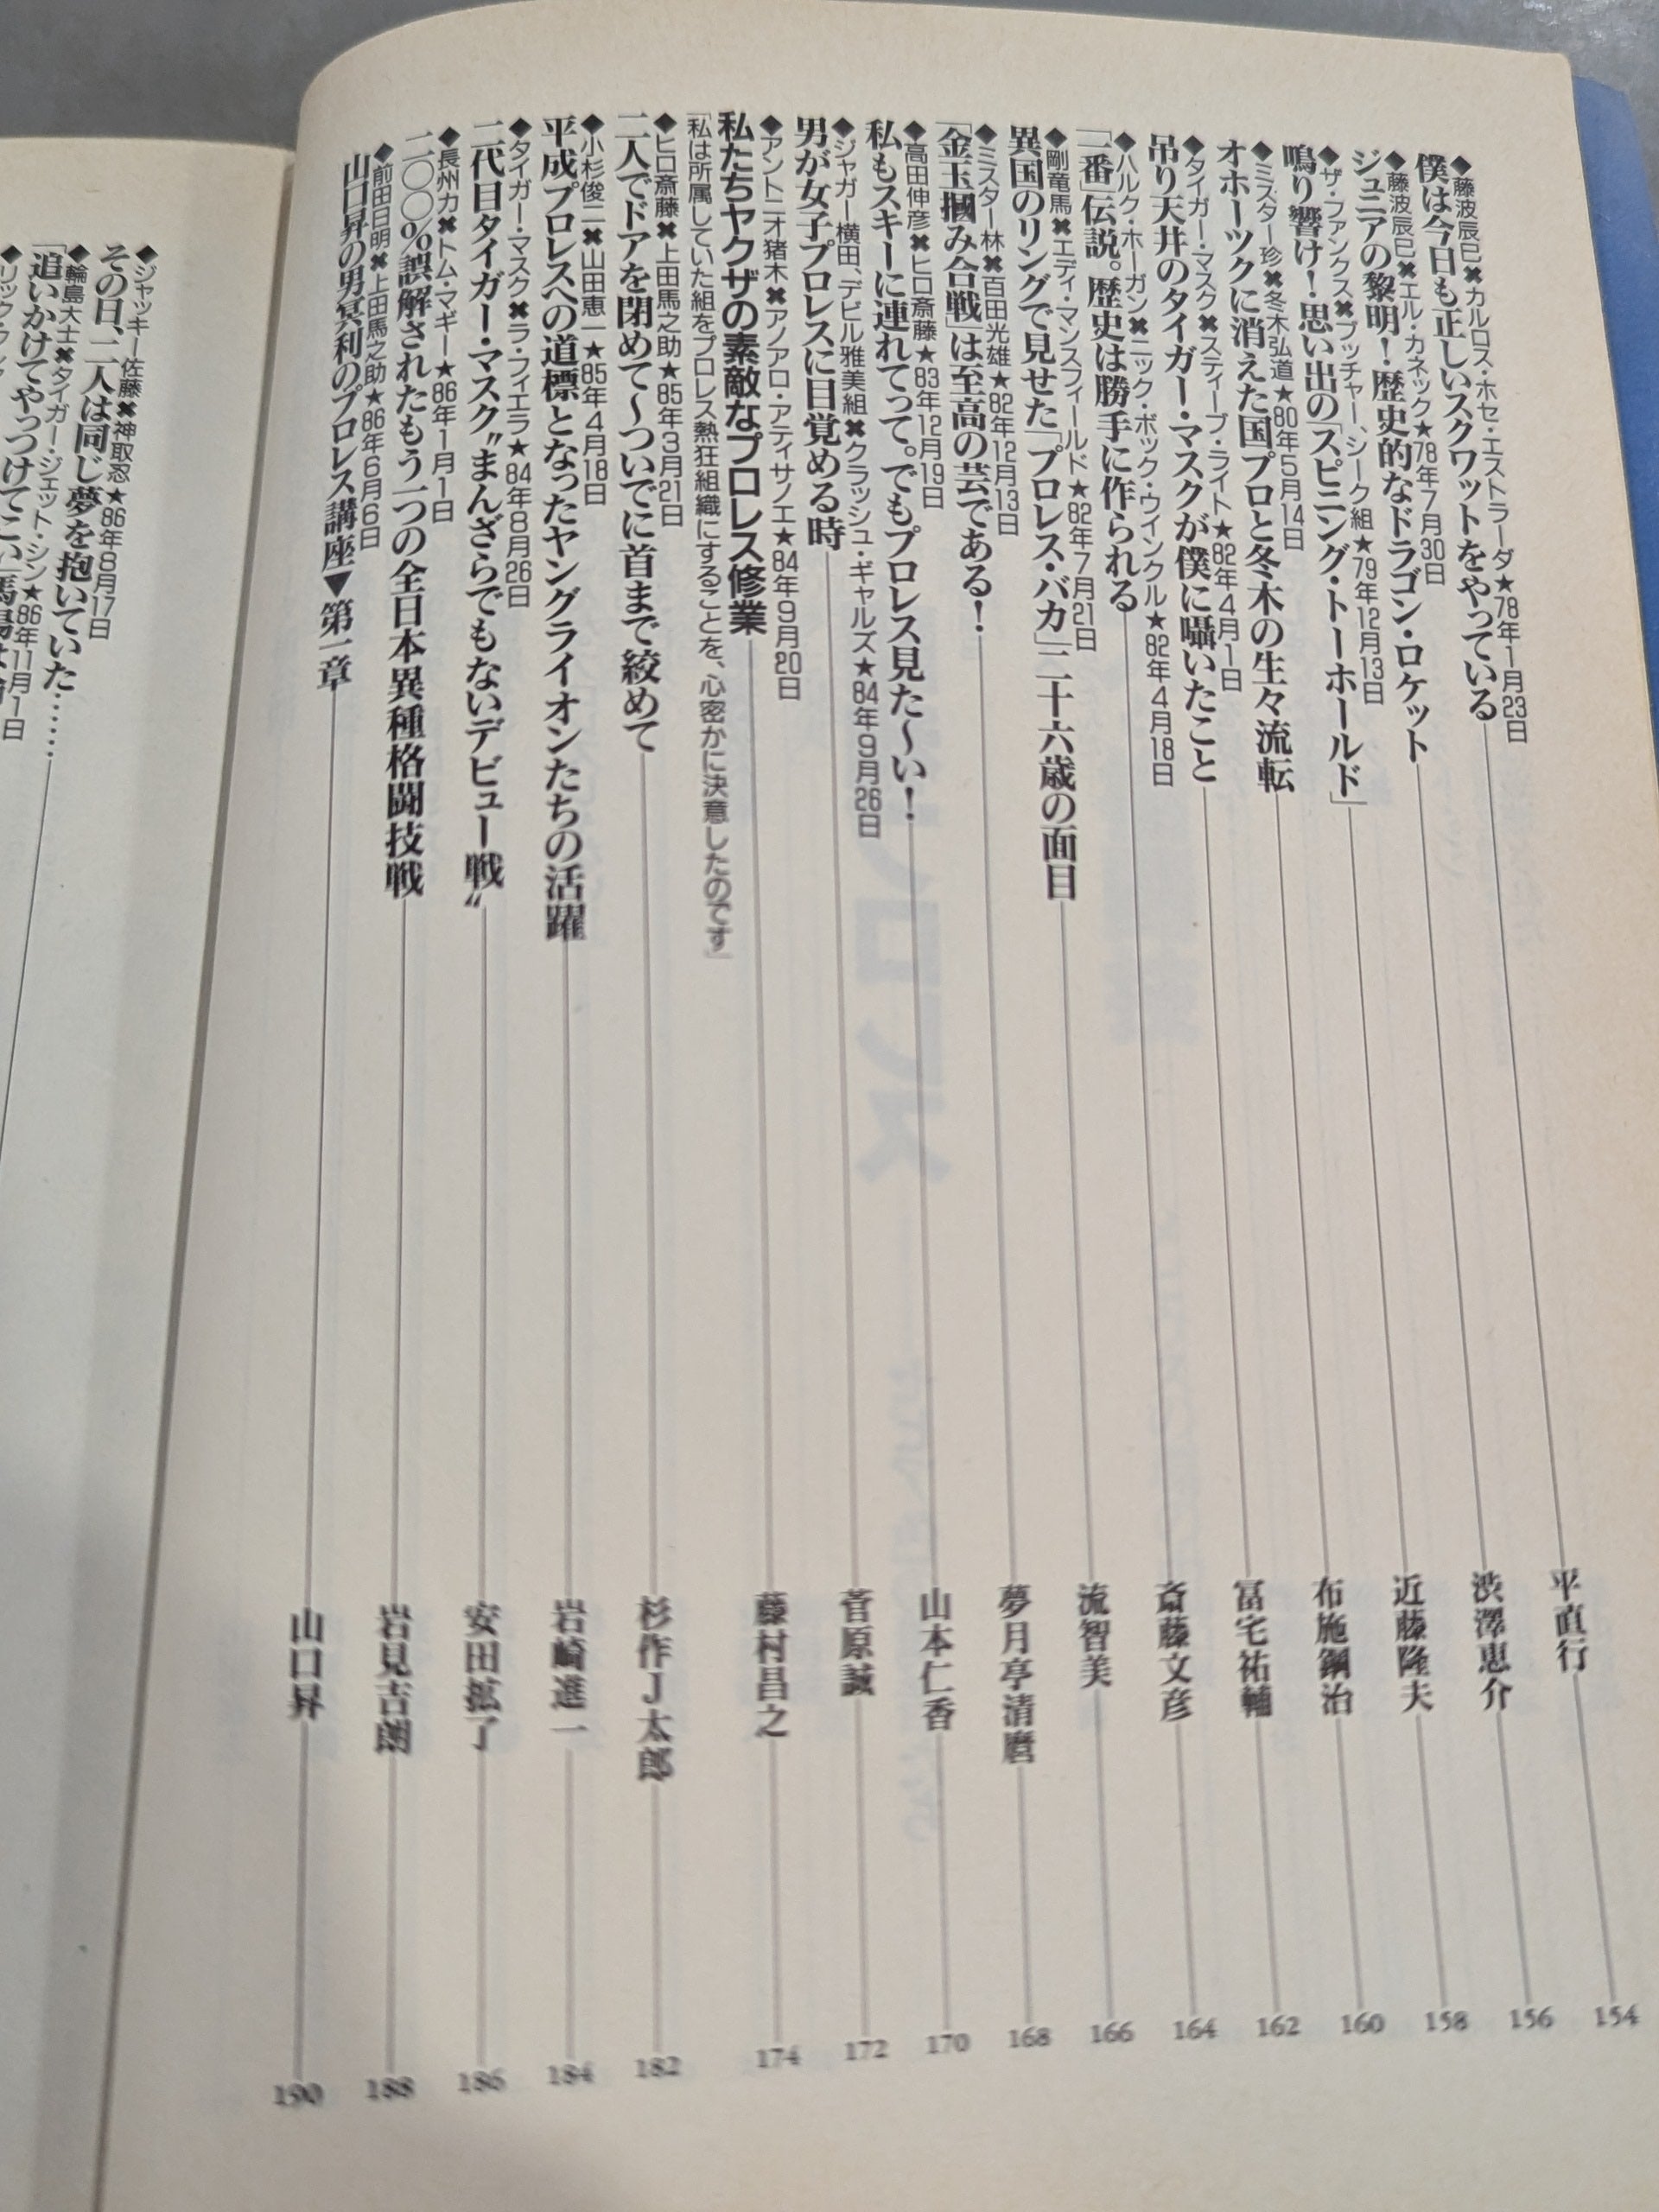 ◆藤波辰巳✖カルロス・ホセ・エストラーダ★78年1月23日
僕は今日も正しいスクワットをやっている 平直行 154
◆藤波辰巳✖エル・カネック★78年7月30日
ジュニアの黎明！歴史的なドラゴン・ロケット 渋澤恵介 156
◆ザ・ファンクス✖ブッチャー、シーク組★79年12月13日
鳴り響け！思い出の「スピニング・トーホールド」 近藤隆夫 158
◆ミスター珍✖冬木弘道★80年5月14日
オホーツクに消えた国プロと冬木の生々流転 布施鋼治 160
◆タイガー・マスク✖スティーブ・ライト★82年4月1日
吊り天井のタイガー・マスクが僕に囁いたこと 冨宅祐輔 162
◆ハルク・ホーガン✖ニック・ボック・ウインクル★82年4月18日
「一番」伝説。歴史は勝手に作られる 斎藤文彦 164
◆剛竜馬✖エディ・マンスフィールド★82年7月21日
異国のリングで見せた「プロレス・バカ」二十六歳の面目 流智美 166
◆ミスター林✖百田光雄★82年12月13日
「金玉摑み合戦」は至高の芸である！ 夢月亭清麿 168
◆高田伸彦✖ヒロ斎藤★83年12月19日
私もスキーに連れてって。でもプロレス見た〜い！ 山本仁香 170
◆ジャガー横田、デビル雅美組✖クラッシュ・ギャルズ★84年9月26日
男が女子プロレスに目覚める時 菅原誠 172
◆アントニオ猪木✖アノアロ・アティサノエ★84年9月20日
私たちヤクザの素敵なプロレス修業 藤村昌之 174
「私は所属していた組をプロレス熱狂組織にすることを、心密かに決意したのです」
◆ヒロ斎藤✖上田馬之助★85年3月21日
二人でドアを閉めて〜ついでに首まで絞めて 杉作J太郎 182
◆小杉俊二✖山田恵一★85年4月18日
平成プロレスへの道標となったヤングライオンたちの活躍 岩崎進一 184
◆タイガー・マスク✖ラ・フィエラ★84年8月26日
二代目タイガー・マスク〝まんざらでもないデビュー戦〟 安田拡了 186
◆長州力✖トム・マギー★86年1月1日
二〇〇％誤解されたもう一つの全日本異種格闘技戦 岩見吉朗 188
◆前田日明✖上田馬之助★86年6月6日
山口昇の男冥利のプロレス講座▼第一章 山口昇 190
◆ジャッキー佐藤✖神取忍★86年8月17日
その日、二人は同じ夢を抱いていた……
◆輪島大士✖タイガー・ジェット・シン★86年11月1日
「追いかけてやっつけてこい
◆リック・